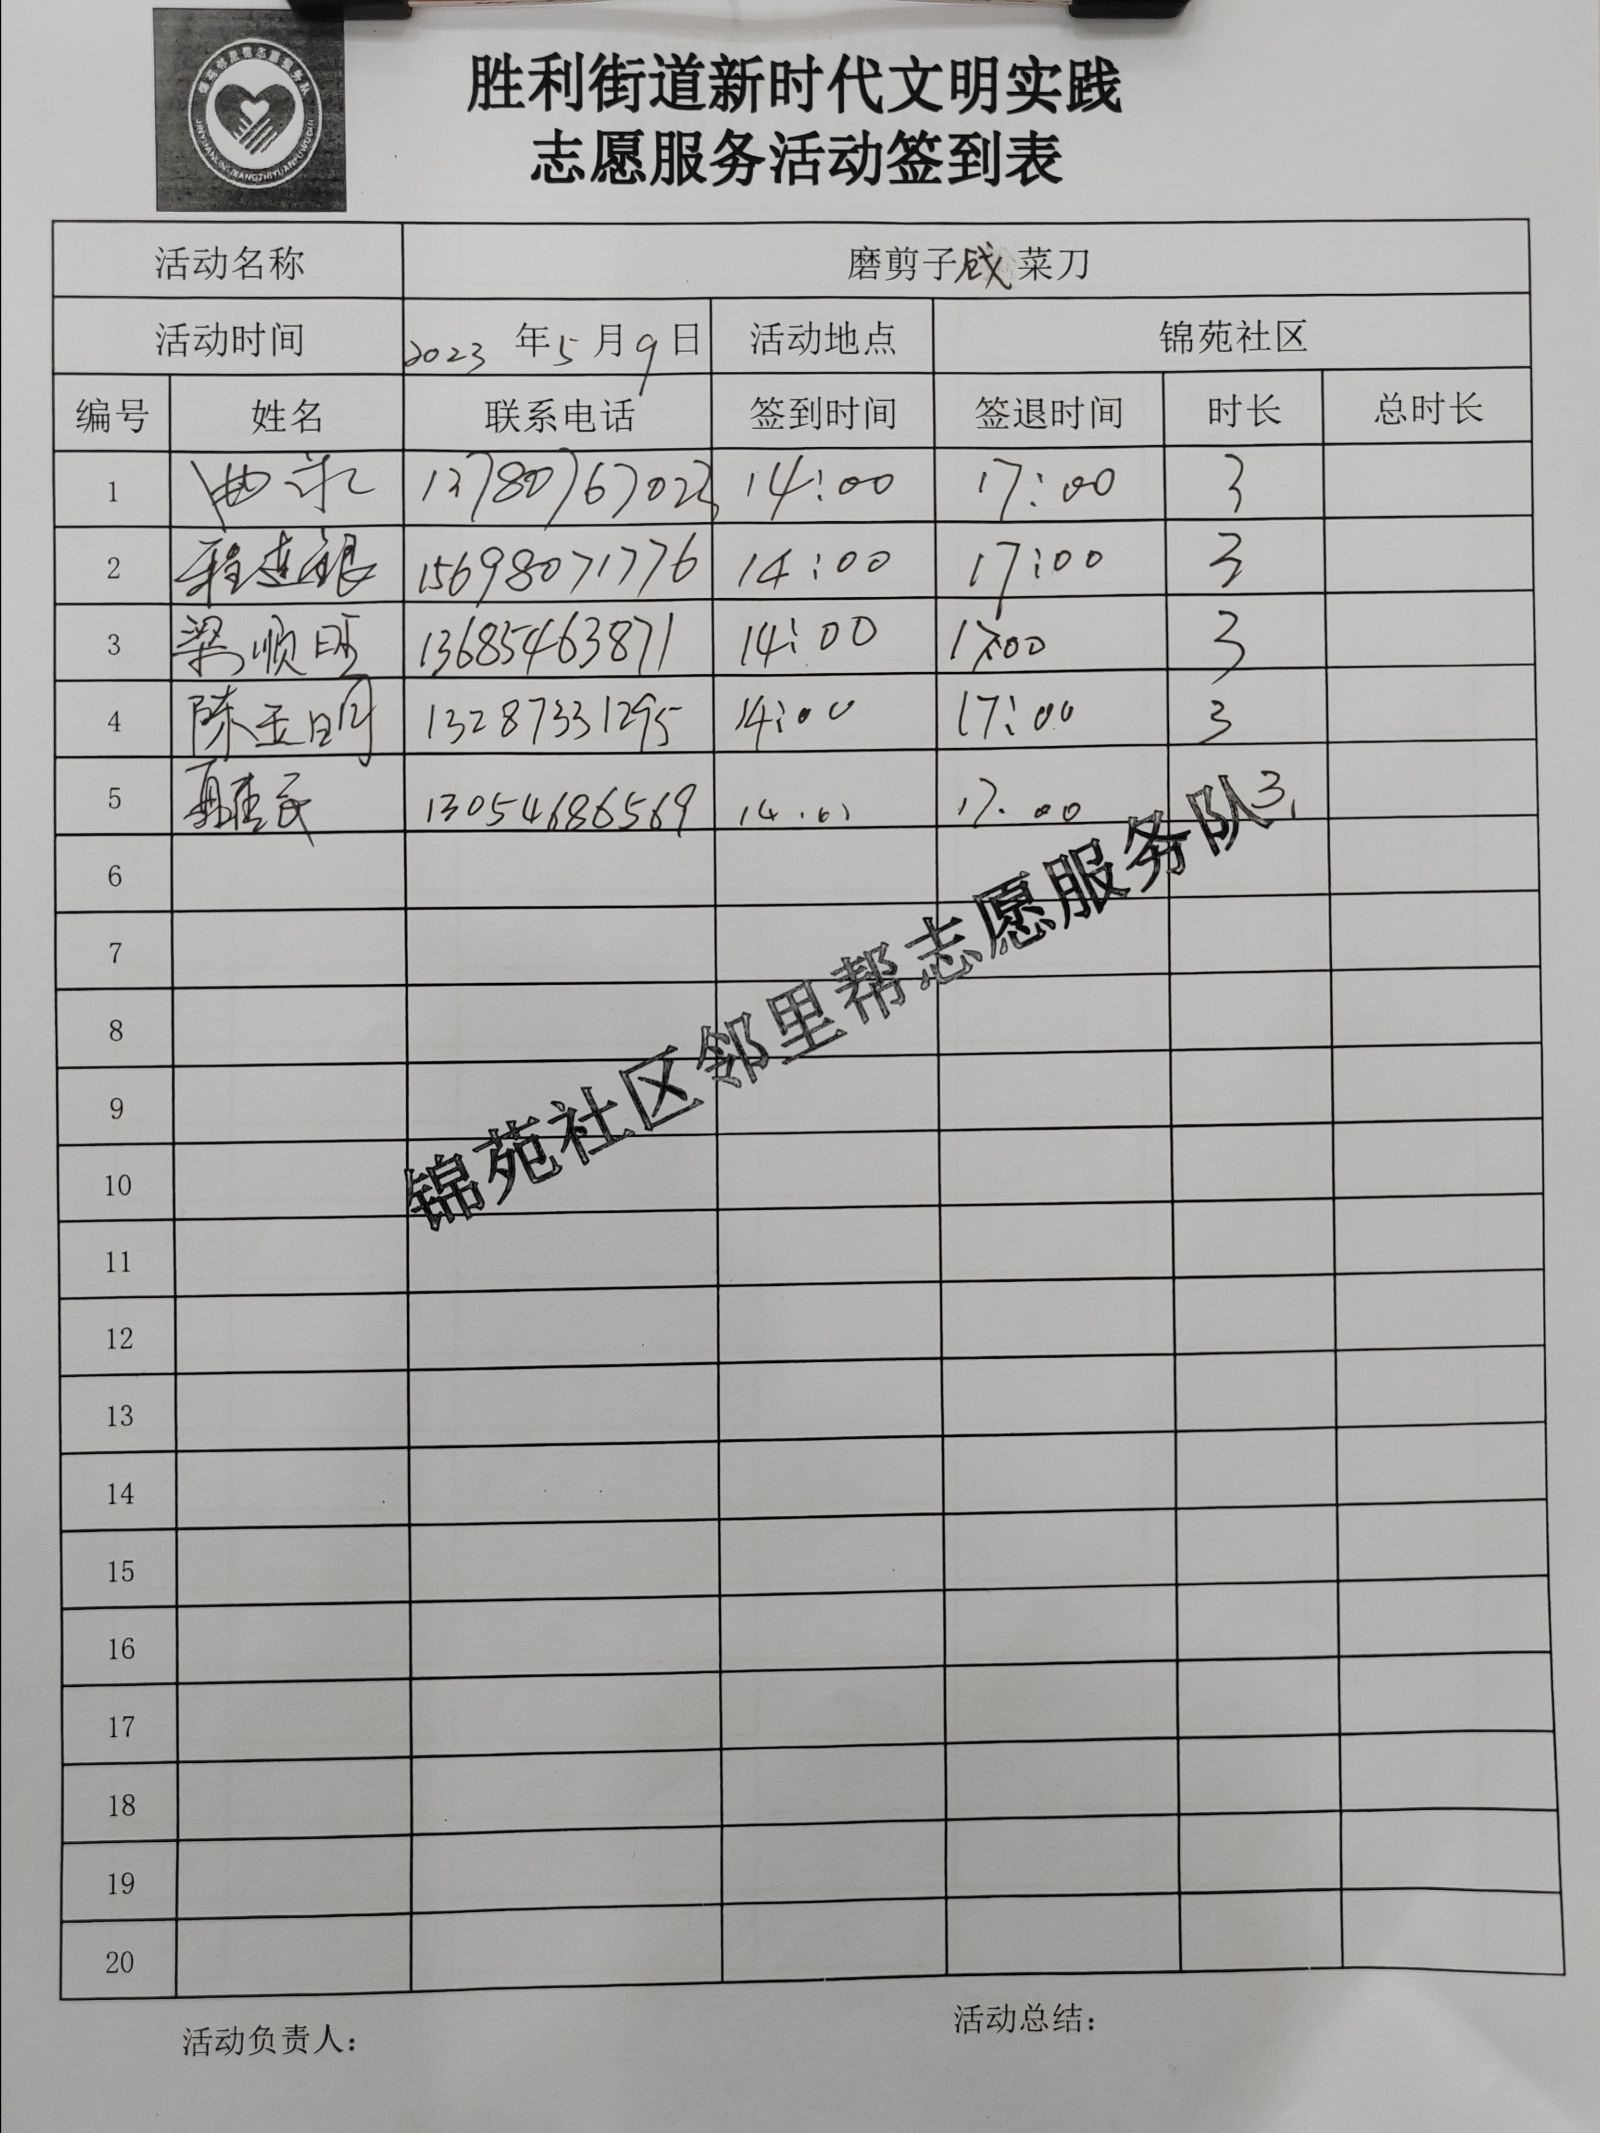 胜利街道新时代文明实践
志愿服务活动签到表
活动名称 磨剪子戗菜刀
活动时间 2023年5月9日 活动地点 锦苑社区
编号 姓名 联系电话 签到时间 签退时间 时长 总时长
1 14:00 17:00 3
2 15698071776 14:00 17:00 3
3 梁顺旺 13685463871 14:00 17:00 3
4 陈玉明 13287331295 14:00 17:00 3
5 13054686569 17:00 3
6
7
8
9
10
11
12
13
14
15
16
17
18
19
20
锦苑社区邻里帮志愿服务队
活动负责人： 活动总结：